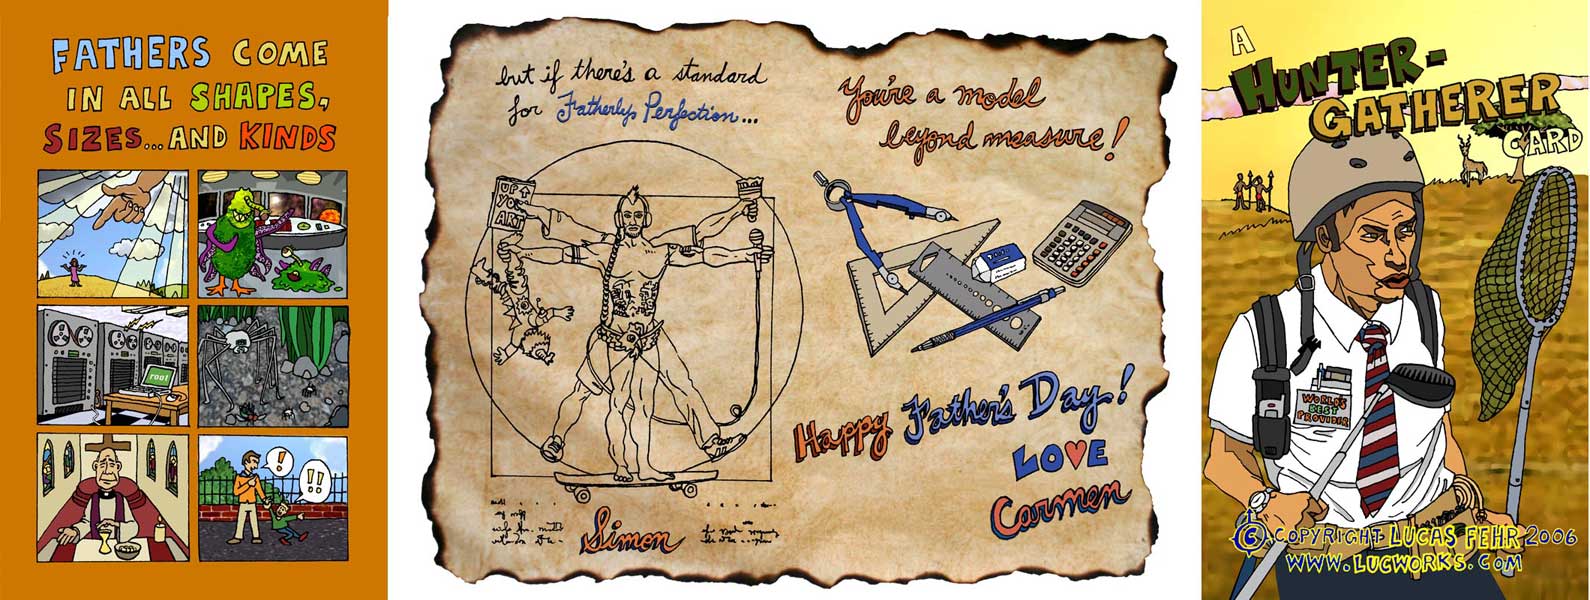 FATHERS COME
IN ALL SHAPES,
SIZES...AND KINDS
root
!
!!
but if there's a standard
for Fatherly Perfection...
UP
YOU
ART
Simon
You're a model
beyond measure!
Happy Father's Day!
LOVE
Carmen
A
HUNTER-
GATHERER
CARD
WORLD'S
BEST
PROVIDER
© COPYRIGHT LUCAS FEHR 2006
WWW.LUCWORKS.COM